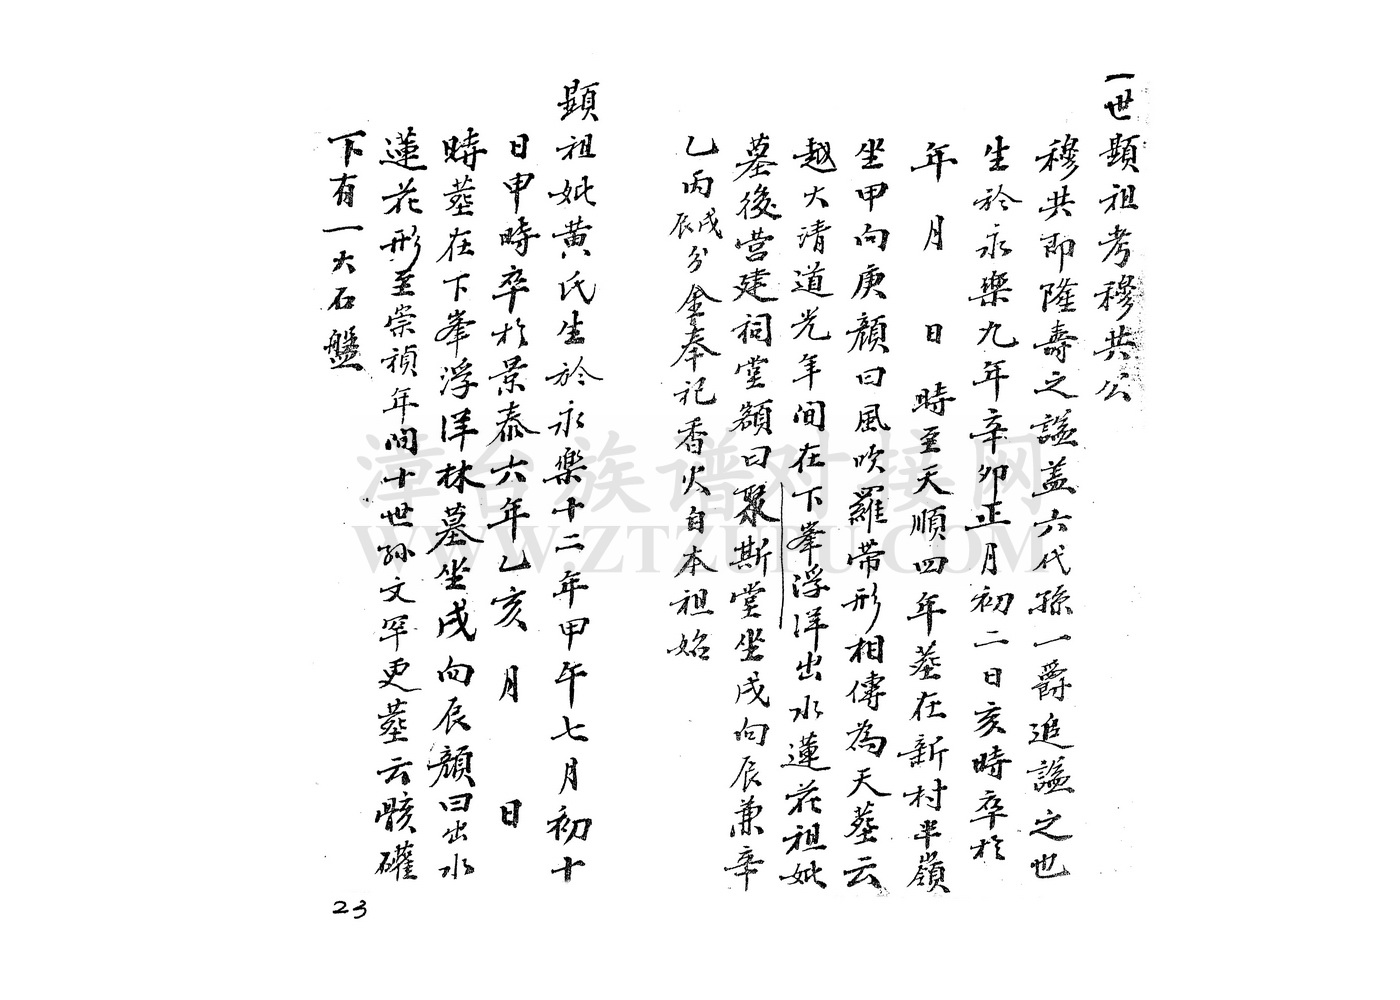 一世顯祖考穆共公
穆共即隆壽之謚盖六代孫一爵追謚之也
生於永樂九年辛卯正月初二日亥時卒於
年 月 日 時至天順四年塟在新村半嶺
坐甲向庚顏曰風吹羅帶形相傳為天塟云
越大清道光年間在下峯浮洋出水蓮花祖妣
墓後营建祠堂額曰聚斯堂坐戌向辰兼辛
乙丙戌丙辰分金奉祀香火自本祖始
顯祖妣黄氏生於永樂十二年甲午七月初十
日申時卒於景泰六年乙亥 月 日
時塟在下峯浮洋林墓坐戌向辰顏曰出水
蓮花形至崇禎年間十世孙文罕更塟云骸礶
下有一大石盤
23
漳台族谱对接网
WWW.ZTZUPU.COM